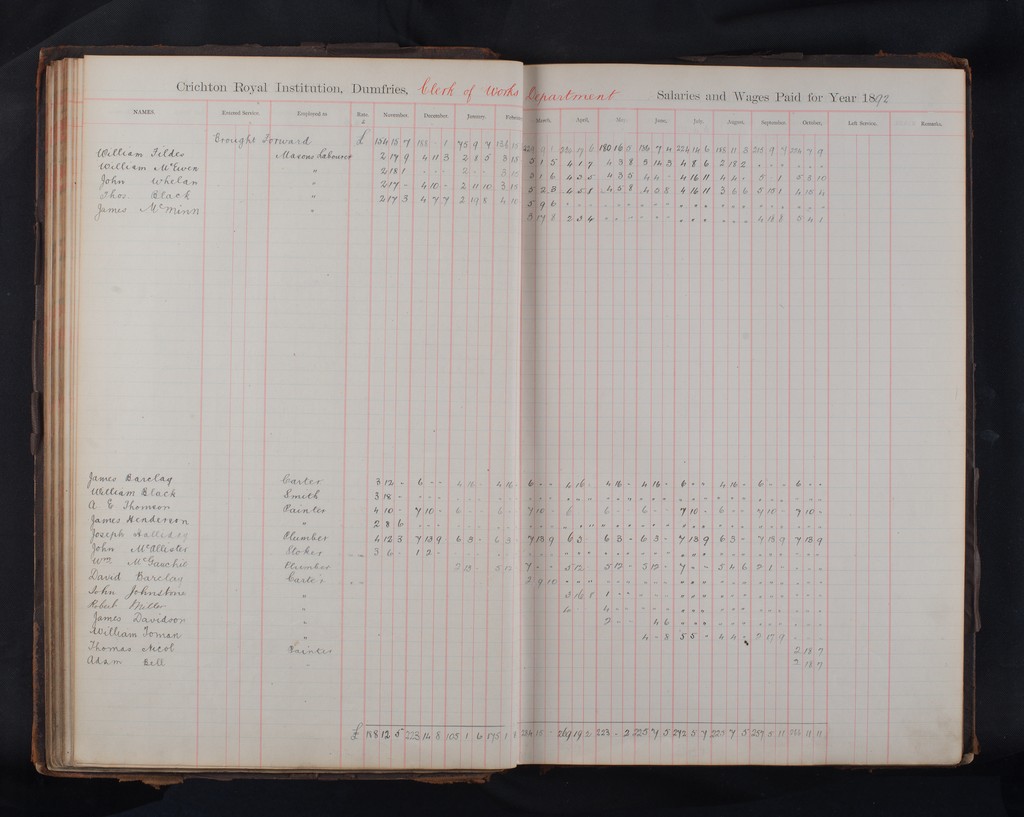 Crichton Royal Institution, Dumfries, Clerk of Works Department Salaries and Wages Paid for Year 1892
NAMES. Entered Service. Employed as Rate. £ November. December. January. March. April. May. June. July. August. September October, Left Service. Remarks.
Brought Forward £ 154 15 7
William Fildes Masons Labourer 2 17 9 4 11 3 2 8 5 3 1 5 4 1 7 4 3 8 3 14 3 4 8 6 2 18 2
William McEwen " 2 18 1 3 1 6 4 3 5 4 3 5 4 4 - 4 16 11 4 4 - 5 - 1 5 3 10
John Whelan " 2 17 - 4 10 - 2 11 10 5 2 3 4 5 8 4 5 8 4 5 8 4 16 11 3 6 6 4 15 4
Thos. Black " 2 17 3 4 7 7 2 19 8 5 9 6
James McMinn " 3 17 8 2 3 4 4 18 8 5 4 1
James Barclay Carter 3 12 - 6 - - 4 16 - 4 16 6 - - 4 16 - 4 16 - 4 16 - 6 - - 4 16 - 6 - - 6 - -
William Black Smith 3 18 -
A. E Thomson Painter 4 10 - 7 10 - 6 - - 6 - 7 10 - 6 6 - - 6 - - 7 10 - 6 - - 7 10 - 7 10 -
James Henderson " 2 8 6
Joseph Halliday Plumber 4 12 3 7 13 9 6 3 - 6 3 7 13 9 6 3 - 6 3 - 6 3 - 7 13 9 6 3 - 7 13 9 7 13 9
John McAllister Stoker 3 6 - 1 2 -
Wm McGaechie Plumber 2 13 - 5 12 7 - - 5 12 - 5 12 - 5 12 - 7 - - 5 4 6 2 1 -
David Barclay Carter 2 9 10
John Johnstone " 3 16 8 1 - -
Robert Miller " 4 - -
James Davidson " 2 - - 4 6
William Toman " 4 - 8 5 5 - 4 4 - 2 17 9
Thomas Nicol Painter 2 18 7
Adam Bell " 2 18 7
£ 188 12 5 223 14 8 105 1 6 175 1 269 19 2 223 - 2 225 7 5 292 5 7 225 7 5 257 5 11